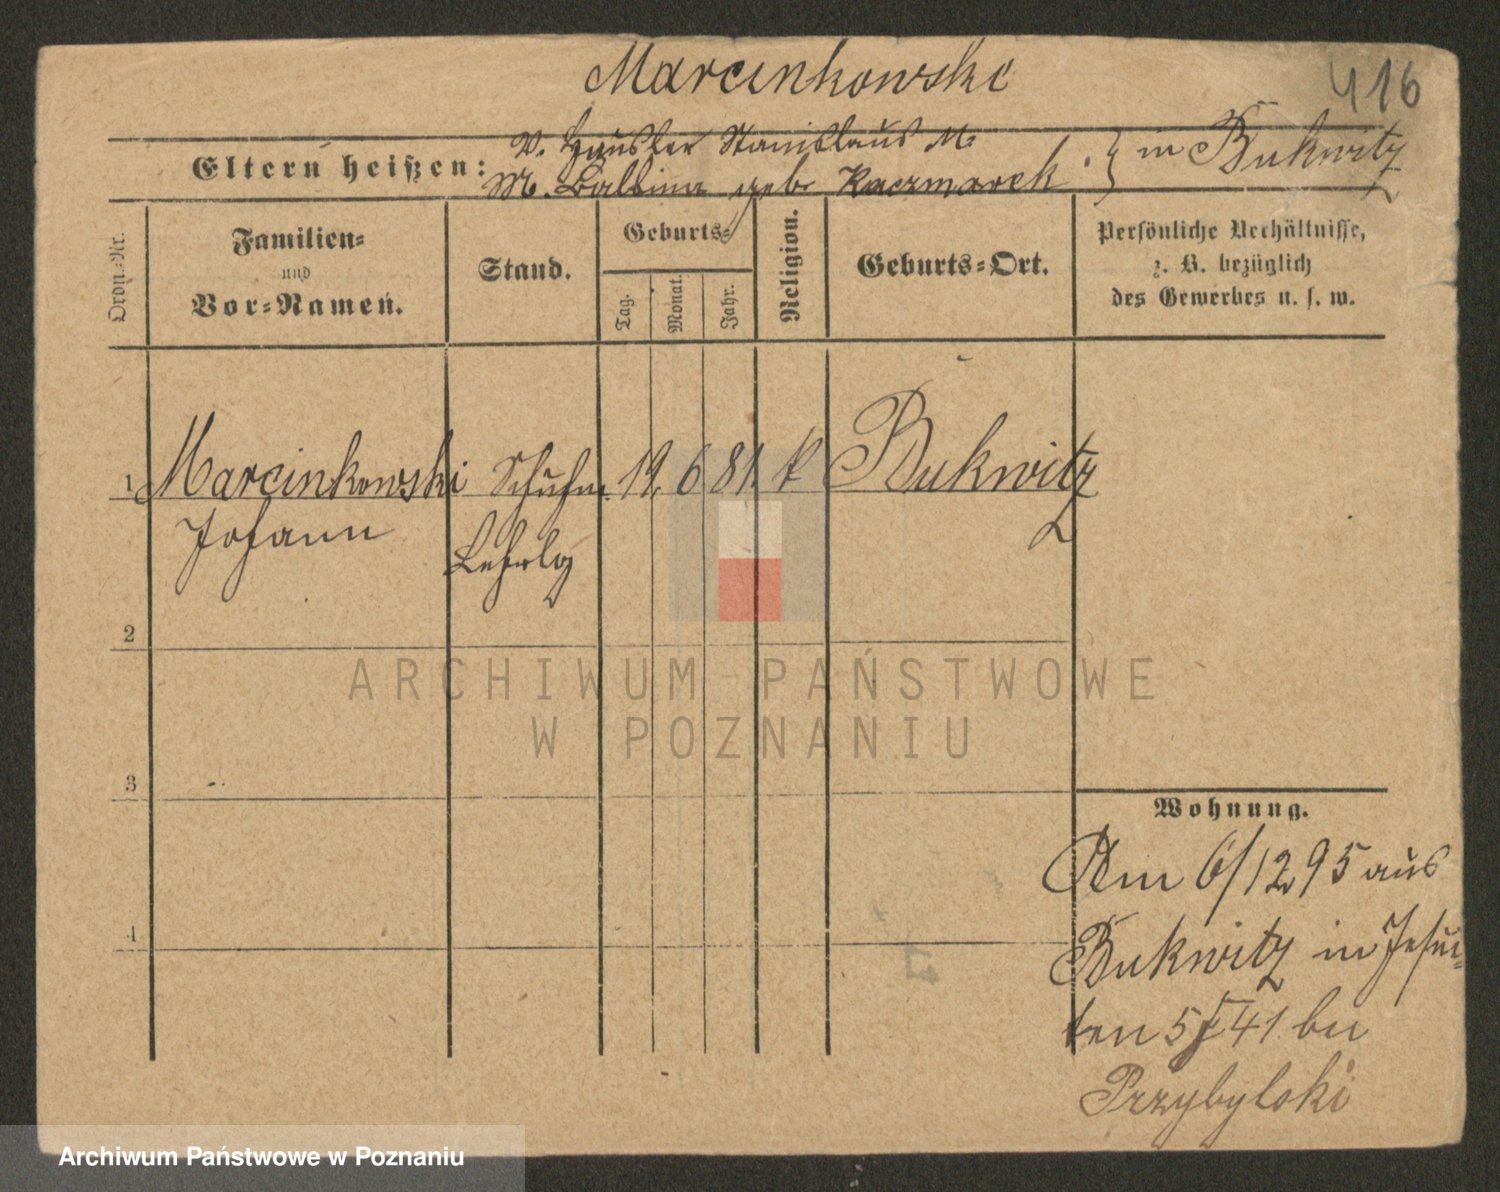 Marcinkowski
416
V. Häusler Stanislaus M.
Eltern heißen:
M. Balbina geb. Kaczmarek } in Bukwitz
Ordn.-Nr.
Familien-
und
Vor-Namen.
Stand.
Geburts-
Tag.
Monat.
Jahr.
Religion.
Geburts-Ort.
Persönliche Verhältnisse,
z. B. bezüglich
des Gewerbes u. s. w.
1 Marcinkowski Schuhm. 19. 6 81. k Bukwitz
Johann Lehrlg
2
3
4
Wohnung.
Am 6/12 95 aus
Bukwitz in Jesui-
ten 5 41 bei
Przybylski
ARCHIWUM PAŃSTWOWE
W POZNANIU
Archiwum Państwowe w Poznaniu